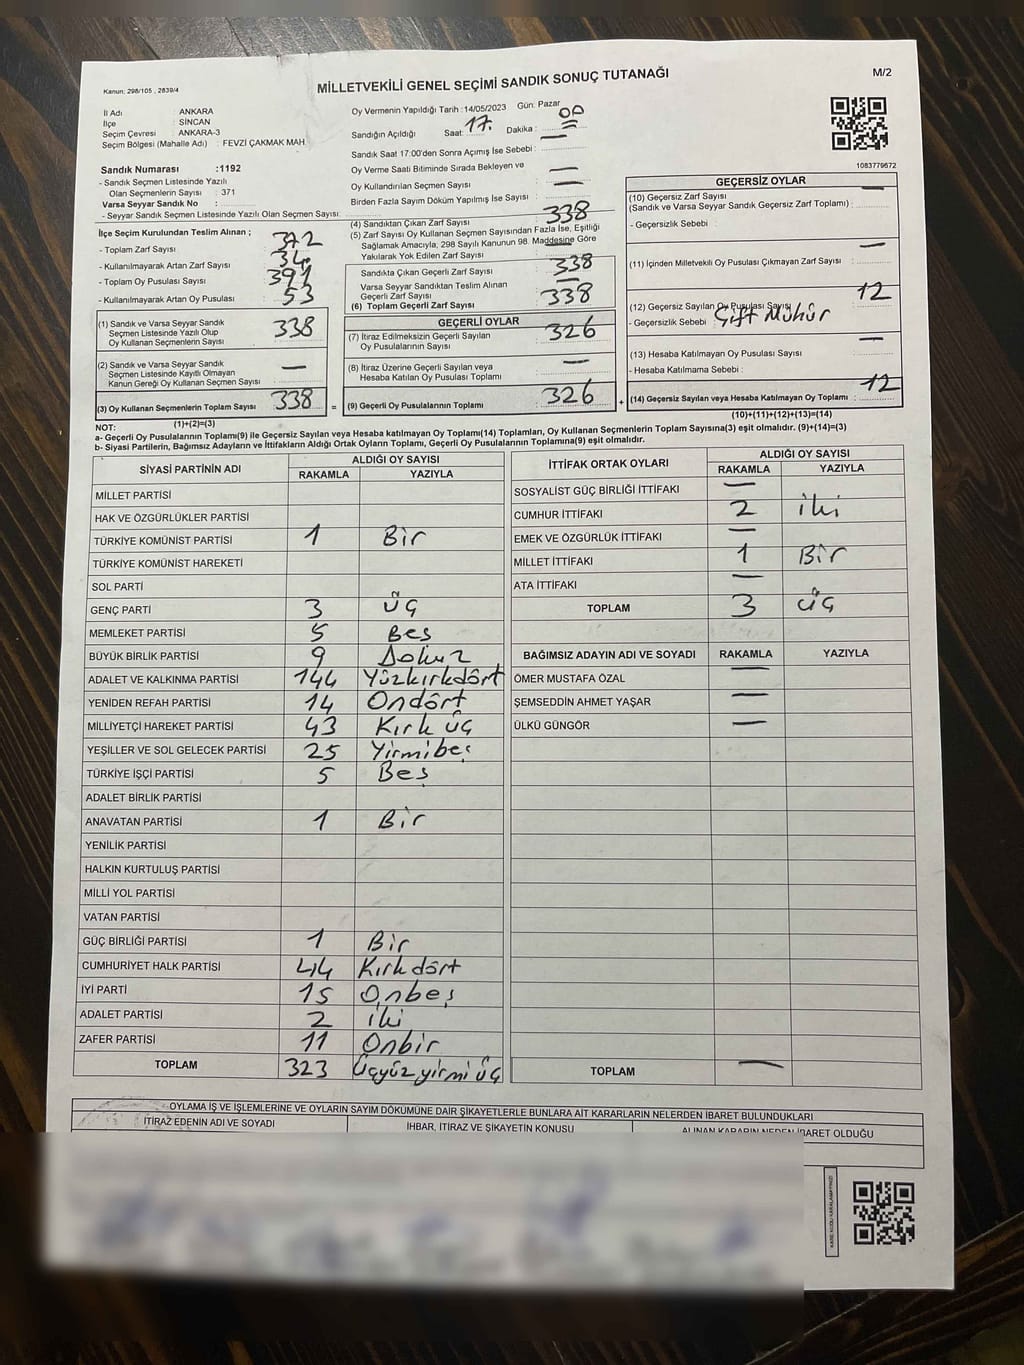 Kanun: 298/105 , 2839/4
MİLLETVEKİLİ GENEL SEÇİMİ SANDIK SONUÇ TUTANAĞI
M/2
İl Adı : ANKARA
İlçe : SİNCAN
Seçim Çevresi : ANKARA-3
Seçim Bölgesi (Mahalle Adı) : FEVZİ ÇAKMAK MAH.
Sandık Numarası :1192
- Sandık Seçmen Listesinde Yazılı
Olan Seçmenlerin Sayısı : 371
Varsa Seyyar Sandık No :
- Seyyar Sandık Seçmen Listesinde Yazılı Olan Seçmen Sayısı:
Oy Vermenin Yapıldığı Tarih :14/05/2023 Gün: Pazar
Sandığın Açıldığı Saat: 17. Dakika : 00
Sandık Saat 17:00'den Sonra Açımış İse Sebebi : —
Oy Verme Saati Bitiminde Sırada Bekleyen ve
Oy Kullandırılan Seçmen Sayısı —
Birden Fazla Sayım Döküm Yapılmış İse Sayısı : —
1083779672
İlçe Seçim Kurulundan Teslim Alınan ;
- Toplam Zarf Sayısı : 372
- Kullanılmayarak Artan Zarf Sayısı : 34
- Toplam Oy Pusulası Sayısı : 391
- Kullanılmayarak Artan Oy Pusulası : 53
(1) Sandık ve Varsa Seyyar Sandık
Seçmen Listesinde Yazılı Olup
Oy Kullanan Seçmenlerin Sayısı : 338
(2) Sandık ve Varsa Seyyar Sandık
Seçmen Listesinde Kayıtlı Olmayan
Kanun Gereği Oy Kullanan Seçmen Sayısı : —
(3) Oy Kullanan Seçmenlerin Toplam Sayısı : 338 =
(1)+(2)=(3)
(4) Sandıktan Çıkan Zarf Sayısı : 338
(5) Zarf Sayısı Oy Kullanan Seçmen Sayısından Fazla İse, Eşitliği
Sağlamak Amacıyla, 298 Sayılı Kanunun 98. Maddesine Göre
Yakılarak Yok Edilen Zarf Sayısı : —
Sandıkta Çıkan Geçerli Zarf Sayısı : 338
Varsa Seyyar Sandıktan Teslim Alınan
Geçerli Zarf Sayısı : —
(6) Toplam Geçerli Zarf Sayısı : 338
GEÇERLİ OYLAR
(7) İtiraz Edilmeksizin Geçerli Sayılan
Oy Pusulalarının Sayısı : 326
(8) İtiraz Üzerine Geçerli Sayılan veya
Hesaba Katılan Oy Pusulası Toplamı : —
(9) Geçerli Oy Pusulalarının Toplamı : 326 +
GEÇERSİZ OYLAR
(10) Geçersiz Zarf Sayısı —
(Sandık ve Varsa Seyyar Sandık Geçersiz Zarf Toplamı) :
- Geçersizlik Sebebi :
(11) İçinden Milletvekili Oy Pusulası Çıkmayan Zarf Sayısı : —
(12) Geçersiz Sayılan Oy Pusulası Sayısı : 12
- Geçersizlik Sebebi Çift Mühür
(13) Hesaba Katılmayan Oy Pusulası Sayısı : —
- Hesaba Katılmama Sebebi :
(14) Geçersiz Sayılan veya Hesaba Katılmayan Oy Toplamı : 12
(10)+(11)+(12)+(13)=(14)
NOT:
a- Geçerli Oy Pusulalarının Toplamı(9) ile Geçersiz Sayılan veya Hesaba Katılmayan Oy Toplamı(14) Toplamları, Oy Kullanan Seçmenlerin Toplam Sayısına(3) eşit olmalıdır. (9)+(14)=(3)
b- Siyasi Partilerin, Bağımsız Adayların ve İttifakların Aldığı Ortak Oyların Toplamı, Geçerli Oy Pusulalarının Toplamına(9) eşit olmalıdır.
SİYASİ PARTİNİN ADI ALDIĞI OY SAYISI
RAKAMLA YAZIYLA
MİLLET PARTİSİ
HAK VE ÖZGÜRLÜKLER PARTİSİ
TÜRKİYE KOMÜNİST PARTİSİ 1 Bir
TÜRKİYE KOMÜNİST HAREKETİ
SOL PARTİ
GENÇ PARTİ 3 Üç
MEMLEKET PARTİSİ 5 Beş
BÜYÜK BİRLİK PARTİSİ 9 Dokuz
ADALET VE KALKINMA PARTİSİ 144 Yüzkırkdört
YENİDEN REFAH PARTİSİ 14 Ondört
MİLLİYETÇİ HAREKET PARTİSİ 43 Kırk üç
YEŞİLLER VE SOL GELECEK PARTİSİ 25 Yirmibeş
TÜRKİYE İŞÇİ PARTİSİ 5 Beş
ADALET BİRLİK PARTİSİ
ANAVATAN PARTİSİ 1 Bir
YENİLİK PARTİSİ
HALKIN KURTULUŞ PARTİSİ
MİLLİ YOL PARTİSİ
VATAN PARTİSİ
GÜÇ BİRLİĞİ PARTİSİ 1 Bir
CUMHURİYET HALK PARTİSİ 44 Kırkdört
İYİ PARTİ 15 Onbeş
ADALET PARTİSİ 2 iki
ZAFER PARTİSİ 11 Onbir
TOPLAM 323 Üçyüzyirmi üç
İTTİFAK ORTAK OYLARI ALDIĞI OY SAYISI
RAKAMLA YAZIYLA
SOSYALİST GÜÇ BİRLİĞİ İTTİFAKI —
CUMHUR İTTİFAKI 2 iki
EMEK VE ÖZGÜRLÜK İTTİFAKI —
MİLLET İTTİFAKI 1 Bir
ATA İTTİFAKI —
TOPLAM 3 üç
BAĞIMSIZ ADAYIN ADI VE SOYADI RAKAMLA YAZIYLA
ÖMER MUSTAFA ÖZAL —
ŞEMSEDDİN AHMET YAŞAR —
ÜLKÜ GÜNGÖR —
TOPLAM —
OYLAMA İŞ VE İŞLEMLERİNE VE OYLARIN SAYIM DÖKÜMÜNE DAİR ŞİKAYETLERLE BUNLARA AİT KARARLARIN NELERDEN İBARET BULUNDUKLARI
İTİRAZ EDENİN ADI VE SOYADI İHBAR, İTİRAZ VE ŞİKAYETİN KONUSU ALINAN KARARIN NEDEN İBARET OLDUĞU